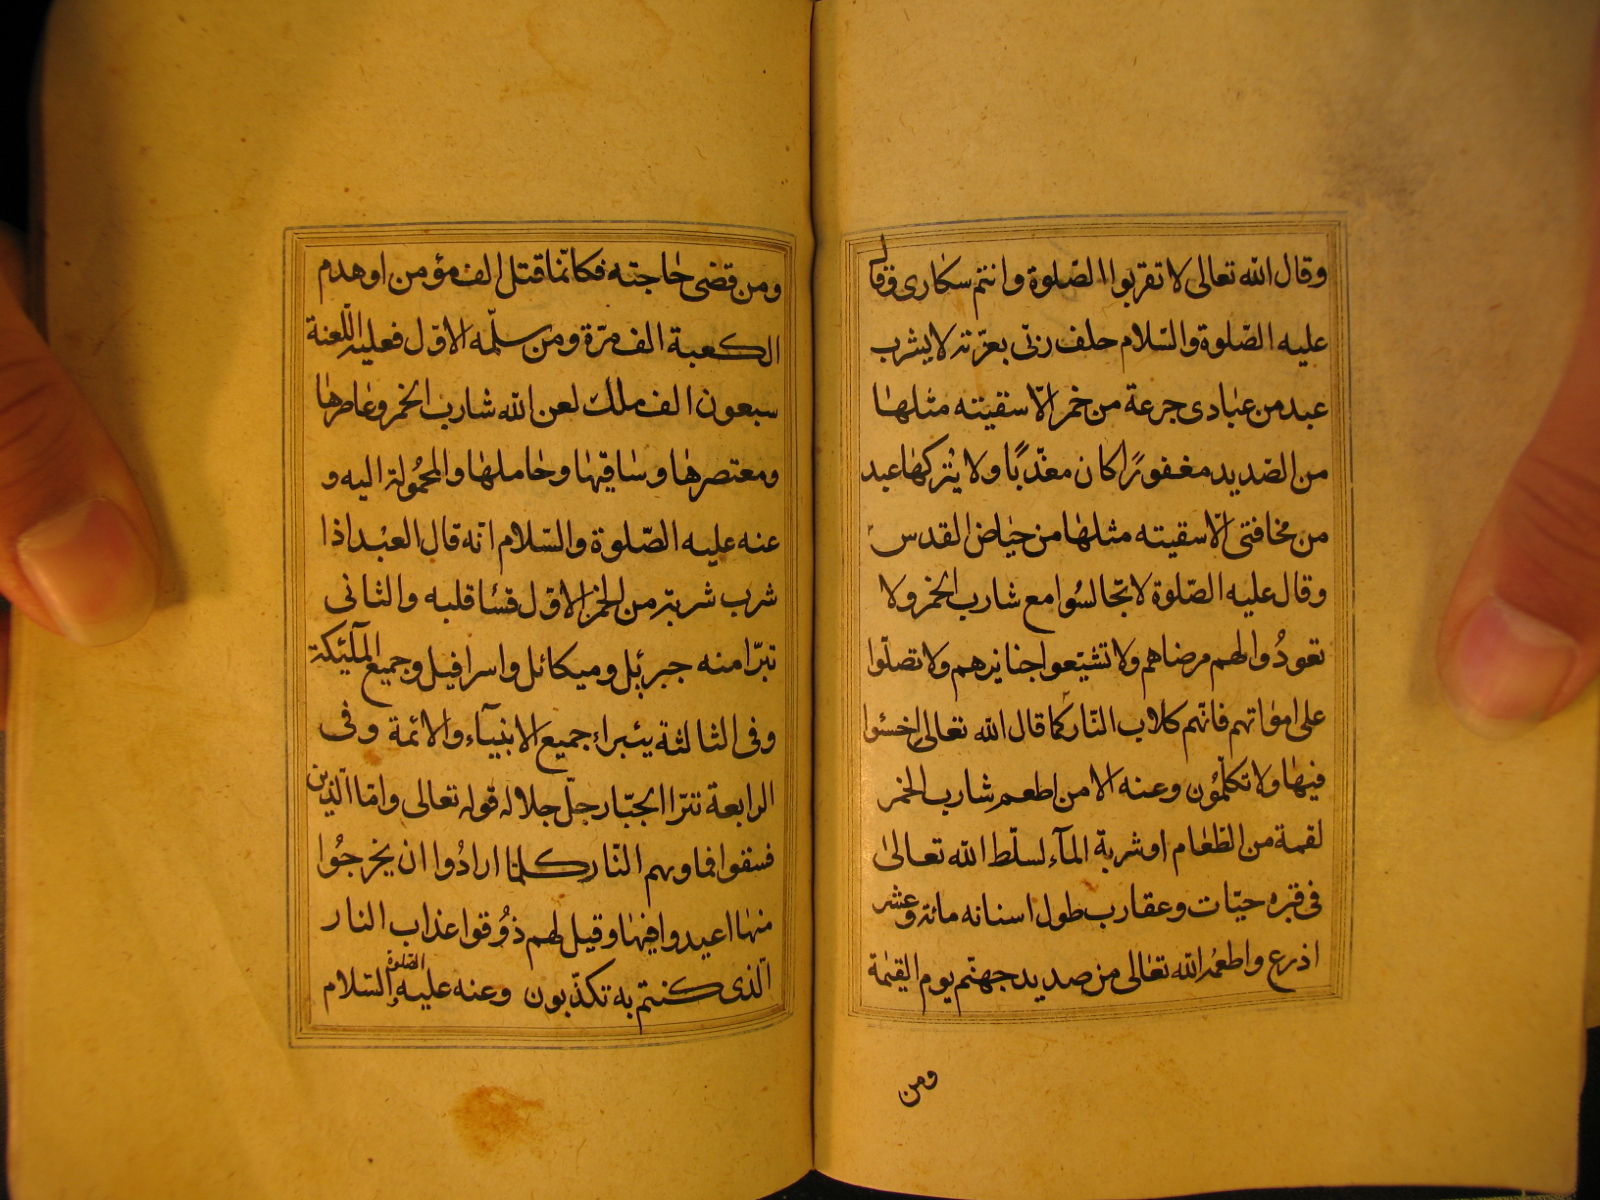 وقال الله تعالى لا تقربوا الصلوة وانتم سكارى وقال
عليه الصّلوة والسّلام حلف ربّى بعزّته لا يشرب
عبد من عبادى جرعة من خمر الاّ سقيته مثلها
من الصديد مغفورًا كان معذّبًا ولا يتركها عبد
من مخافتى الاّ سقيته مثلها من حياض القدس
وقال عليه الصّلوة لا تجالسوا مع شارب الخمر ولا
تعودُوا لهم مرضاهم ولا تشيّعوا جنايزهم ولا تصلّوا
على امواتهم فانّهم كلاب النّار كما قال الله تعالى اخسئوا
فيها ولا تكلّمُون وعنه الا من اطعم شارب الخمر
لقمة من الطّعام او شربة المآء لسلّط الله تعالىٰ
فى قبره حيّات وعقارب طول اسنانه مائة وعشر
اذرع واطعمُه الله تعالى من صديد جهنّم يوم القيٰمة
ومن
ومن قضى حاجته فكانّما قتل الف مؤمن او هدم
الكعبة الف مرّة ومن سلّمه الاوّل فعليه اللّعنة
سبعون الف ملك لعن الله شارب الخمر وعاصرها
ومعتصرها وساقيها وحاملها والمحمُولة اليه و
عنه عليه الصّلوة والسّلام انّه قال العبد اذا
شرب شربة من الخمر الاوّل قسا قلبه والثانى
تبرّا منه جبرئيل وميكائل واسرافيل وجميع الملٓئكة
وفى الثالثة يتبراء جميع الانبيآء والائمة وفى
الرابعة تبرّا الجبّار جلّ جلاله قوله تعالى وامّا الّذين
فسقوا فماويهم النّار كلما ارادُوا ان يخرجُوا
منها اعيدوا فيها وقيل لهم ذوُقوا عذاب النار
الّذى كنتم به تكذّبون وعنه عليه الصّلوة والسّلام